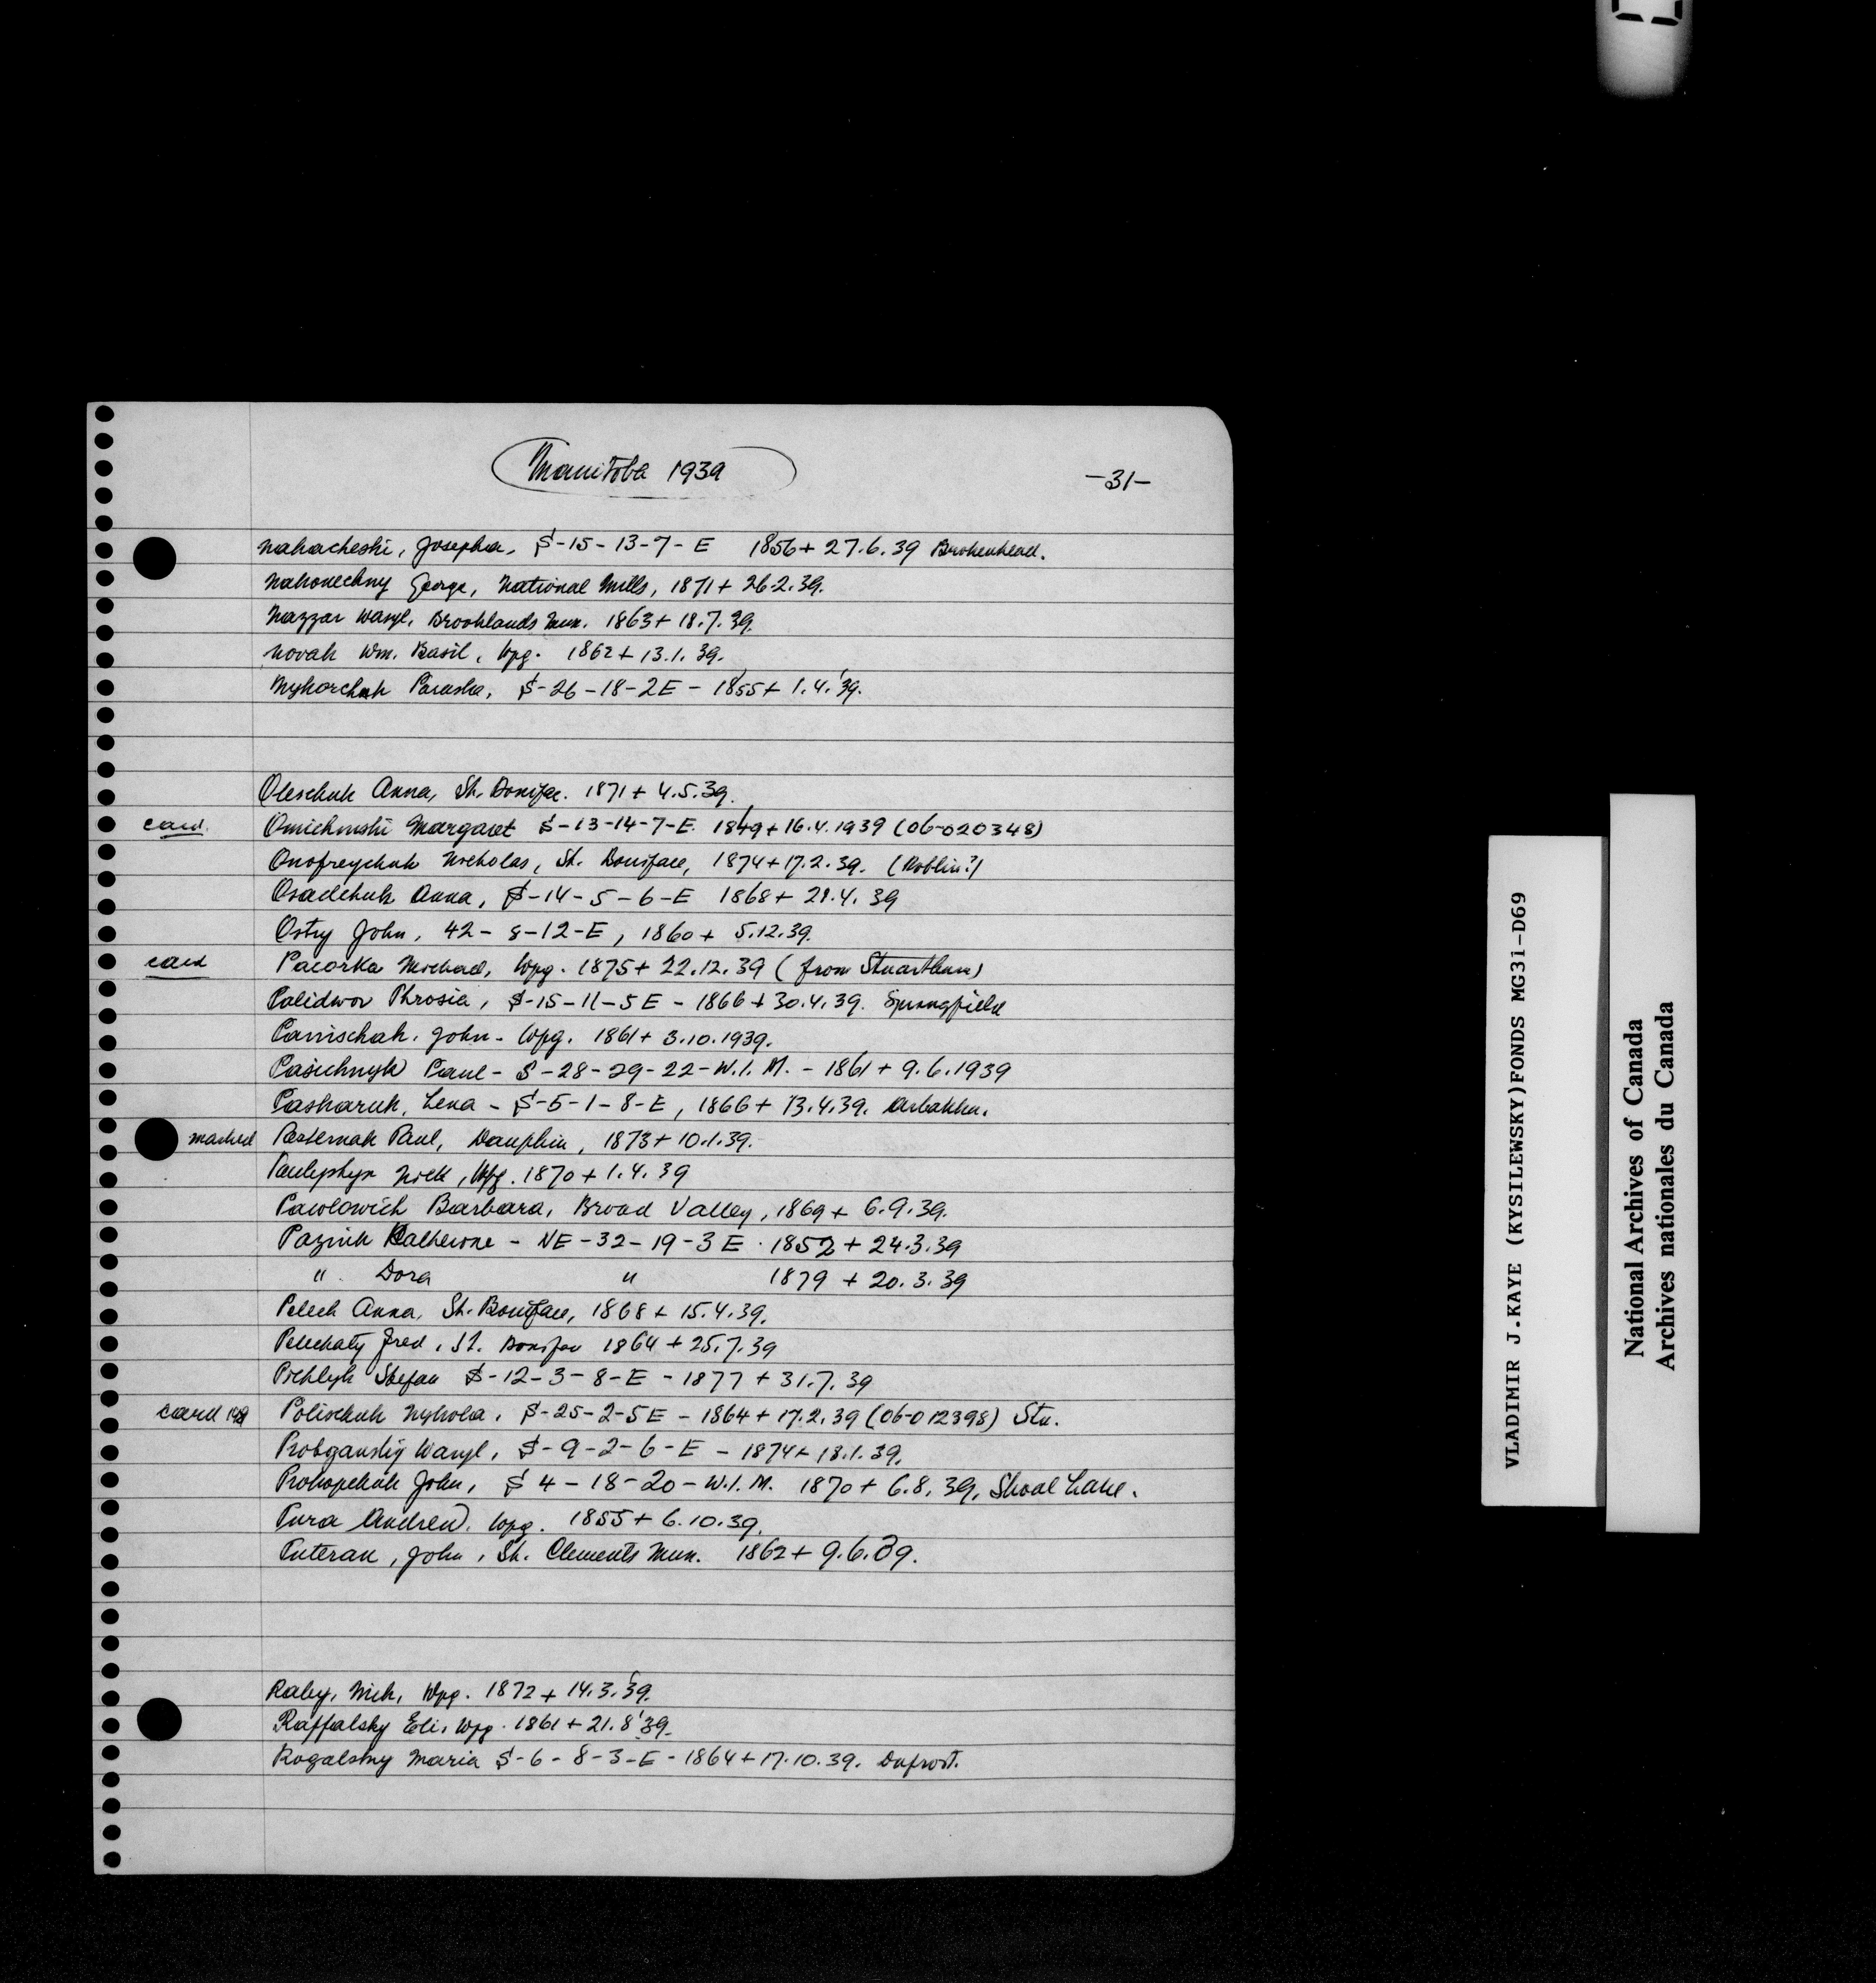 Manitoba 1939
-31-
Nakacheski, Josepha, S-15-13-7-E 1856+ 27.6.39 Brokenhead.
Nakonechny George, National Mills, 1871+ 26.2.39.
Nazzar Wasyl, Brooklands Mun. 1863+ 18.7.39.
Novak Wm. Basil, Wpg. 1862+ 13.1.39.
Nykorchuk Paraska, S-26-18-2E - 1855+ 1.4.'39.
Oleschuk Anna, St. Bonifac. 1871+ 4.5.39.
card. Omichinski Margaret S-13-14-7-E. 1849+16.4.1939 (06-020348)
Onofreychuk Nicholas, St. Boniface, 1874+17.2.39. (Roblin?)
Osadchuk Anna, S-14-5-6-E 1868+ 21.4.39
Ostry John, 42-8-12-E, 1860+ 5.12.39.
card Pacorka Michael, Wpg. 1875+ 22.12.39 (from Stuartburn)
Palidwor Phrosia, S-15-11-5E - 1866+30.4.39. Springfield
Panischak. John - Wpg. 1861+ 3.10.1939.
Pasichnyk Paul - S-28-29-22-W.1.M. - 1861+ 9.6.1939
Pasharuk, Lena - S-5-1-8-E, 1866+ 13.4.39. Arbakka.
marked Pasternak Paul, Dauphin, 1873+ 10.1.39.
Nick, Wpg. 1870+ 1.4.39
Pawlowich Barbara, Broad Valley, 1869+ 6.9.39.
Paziuk Katherine - NE-32-19-3E. 1852+ 24.3.39
" Dora " 1879 + 20.3.39
Pelech Anna, St. Boniface, 1868+ 15.4.39.
Pelechaty Fred, St. Bonifac 1864+25.7.39
Pichlyk Stefan S-12-3-8-E - 1877 + 31.7.39
card Polischuk Nykola, S-25-2-5E - 1864+17.2.39 (06-012398) Stu.
Wasyl, S-9-2-6-E - 1874+ 13.1.39.
Prokopchuk John, S 4-18-20-W.1.M. 1870+ 6.8.39, Shoal Lake.
Pura Andrew. Wpg. 1855+ 6.10.39.
Puteran, John, St. Clements Mun. 1862+ 9.6.39.
Raby, Nick, Wpg. 1872+ 14.3.'39.
Raffalsky Eli, Wpg. 1861+21.8'39.
Rogalsky Maria S-6-8-3-E - 1864+17.10.39. Dufrost.
VLADIMIR J.KAYE (KYSILEWSKY)FONDS MG31-D69
National Archives of Canada
Archives nationales du Canada